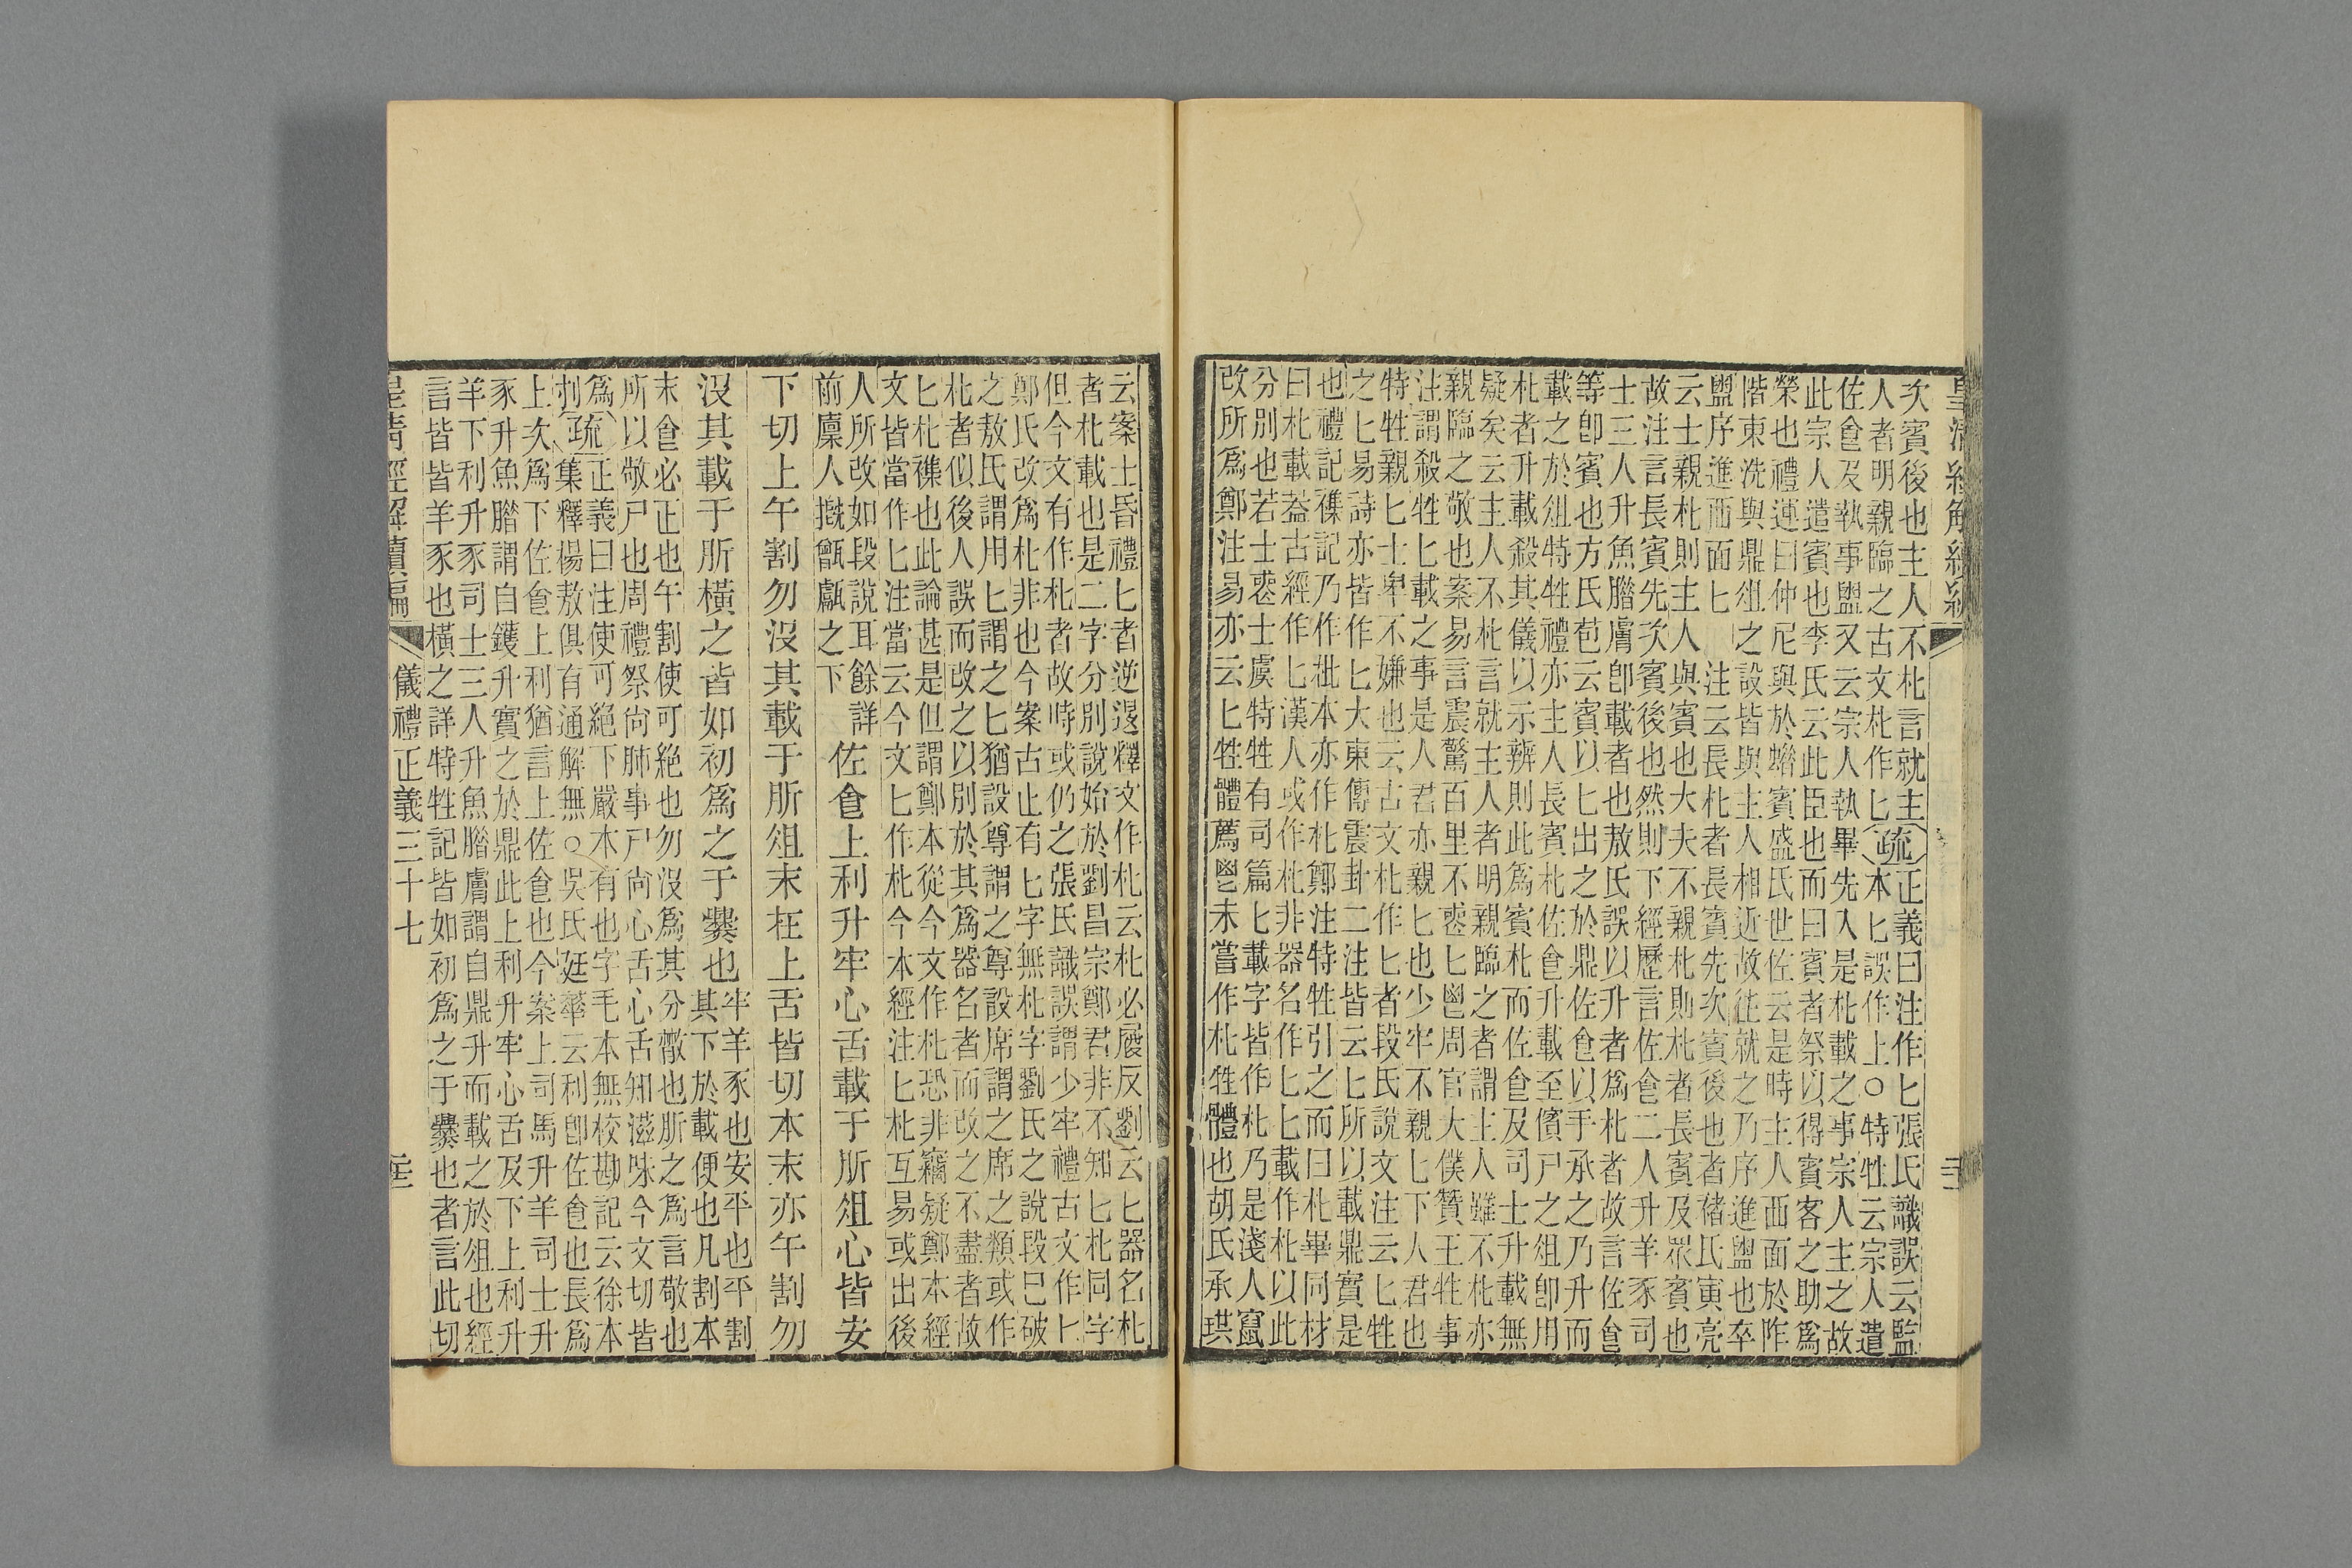 次賓後也主人不朼言就主
人者明親臨之古文朼作匕
疏
正義曰注作匕張氏識誤云監
本匕誤作上○特牲云宗人遣
佐食及執事盥又云宗人執畢先入是朼載之事宗人主之故
此宗人遣賓也李氏云此臣也而曰賓者祭以得賓客之助為
榮也禮運曰仲尼與於蜡賓盛氏世佐云是時主人西面於阼
階東洗與鼎俎之設皆與主人相近故往就之乃序進盥也卒
盥序進西面匕 注云長朼者長賓先次賓後也者褚氏寅亮
云士親朼則主人與賓也大夫不親朼則朼者長賓及眾賓也
故注言長賓先次賓後也然則下經歷言佐食二人升羊豕司
士三人升魚腊膚卽載者也敖氏誤以升者為朼者故言佐食
等卽賓也方氏苞云賓以匕出之於鼎佐食以手承之乃升而
載之於俎特牲禮亦主人長賓朼佐食升載至儐尸之俎卽用
朼者升載殺其儀以示辨則此為賓朼而佐食及司士升載無
疑矣云主人不朼言就主人者明親臨之者謂主人雖不朼亦
親臨之敬也案易言震驚百里不喪匕鬯周官大僕贊王牲事
注謂殺牲匕載之事是人君亦親匕也少牢不親匕下人君也
特牲親匕士卑不嫌也云古文朼作匕者段氏說文注云匕牲
之匕易詩亦皆作匕大東傳震卦二注皆云匕所以載鼎實是
也禮記襍記乃作枇本亦作朼鄭注特牲引之而曰朼畢同材
曰朼載葢古經作匕漢人或作朼非器名作匕匕載作朼以此
分別也若士喪士虞特牲有司篇匕載字皆作朼乃是淺人竄
改所為鄭注易亦云匕牲體薦鬯未嘗作朼牲體也胡氏承珙
云案士昏禮匕者逆退釋文作朼云朼必履反劉云匕器名朼
者朼載也是二字分別說始於劉昌宗鄭君非不知匕朼同字
但今文有作朼者故時或仍之張氏識誤謂少牢禮古文作匕
鄭氏改為朼非也今案古止有匕字無朼字劉氏之說段已破
之敖氏謂用匕謂之匕猶設尊謂之尊設席謂之席之類或作
朼者似後人誤而改之以別於其為器名者而改之不盡者故
匕朼襍也此論甚是但謂鄭本從今文作朼恐非竊疑鄭本經
文皆當作匕注當云今文匕作朼今本經注匕朼互易或出後
人所改如段說耳餘詳
前廩人摡甑甗之下
佐食上利升牢心舌載于肵俎心皆安
下切上午割勿沒其載于肵俎末在上舌皆切本末亦午割勿
沒其載于肵橫之皆如初為之于爨也
牢羊豕也安平也平割
其下於載便也凡割本
末食必正也午割使可絕也勿沒為其分散也肵之為言敬也
所以敬尸也周禮祭尚肺事尸尚心舌心舌知滋味今文切皆
為
刌
疏
正義曰注使可絕下嚴本有也字毛本無校勘記云徐本
集釋楊敖俱有通解無○吳氏廷華云利卽佐食也長為
上次為下佐食上利猶言上佐食也今案上司馬升羊司士升
豕升魚腊謂自鑊升實之於鼎此上利升牢心舌及下上利升
羊下利升豕司士三人升魚腊膚謂自鼎升而載之於俎也經
言皆皆羊豕也橫之詳特牲記皆如初為之于爨也者言此切
皇清經解續編 儀禮正義三十七